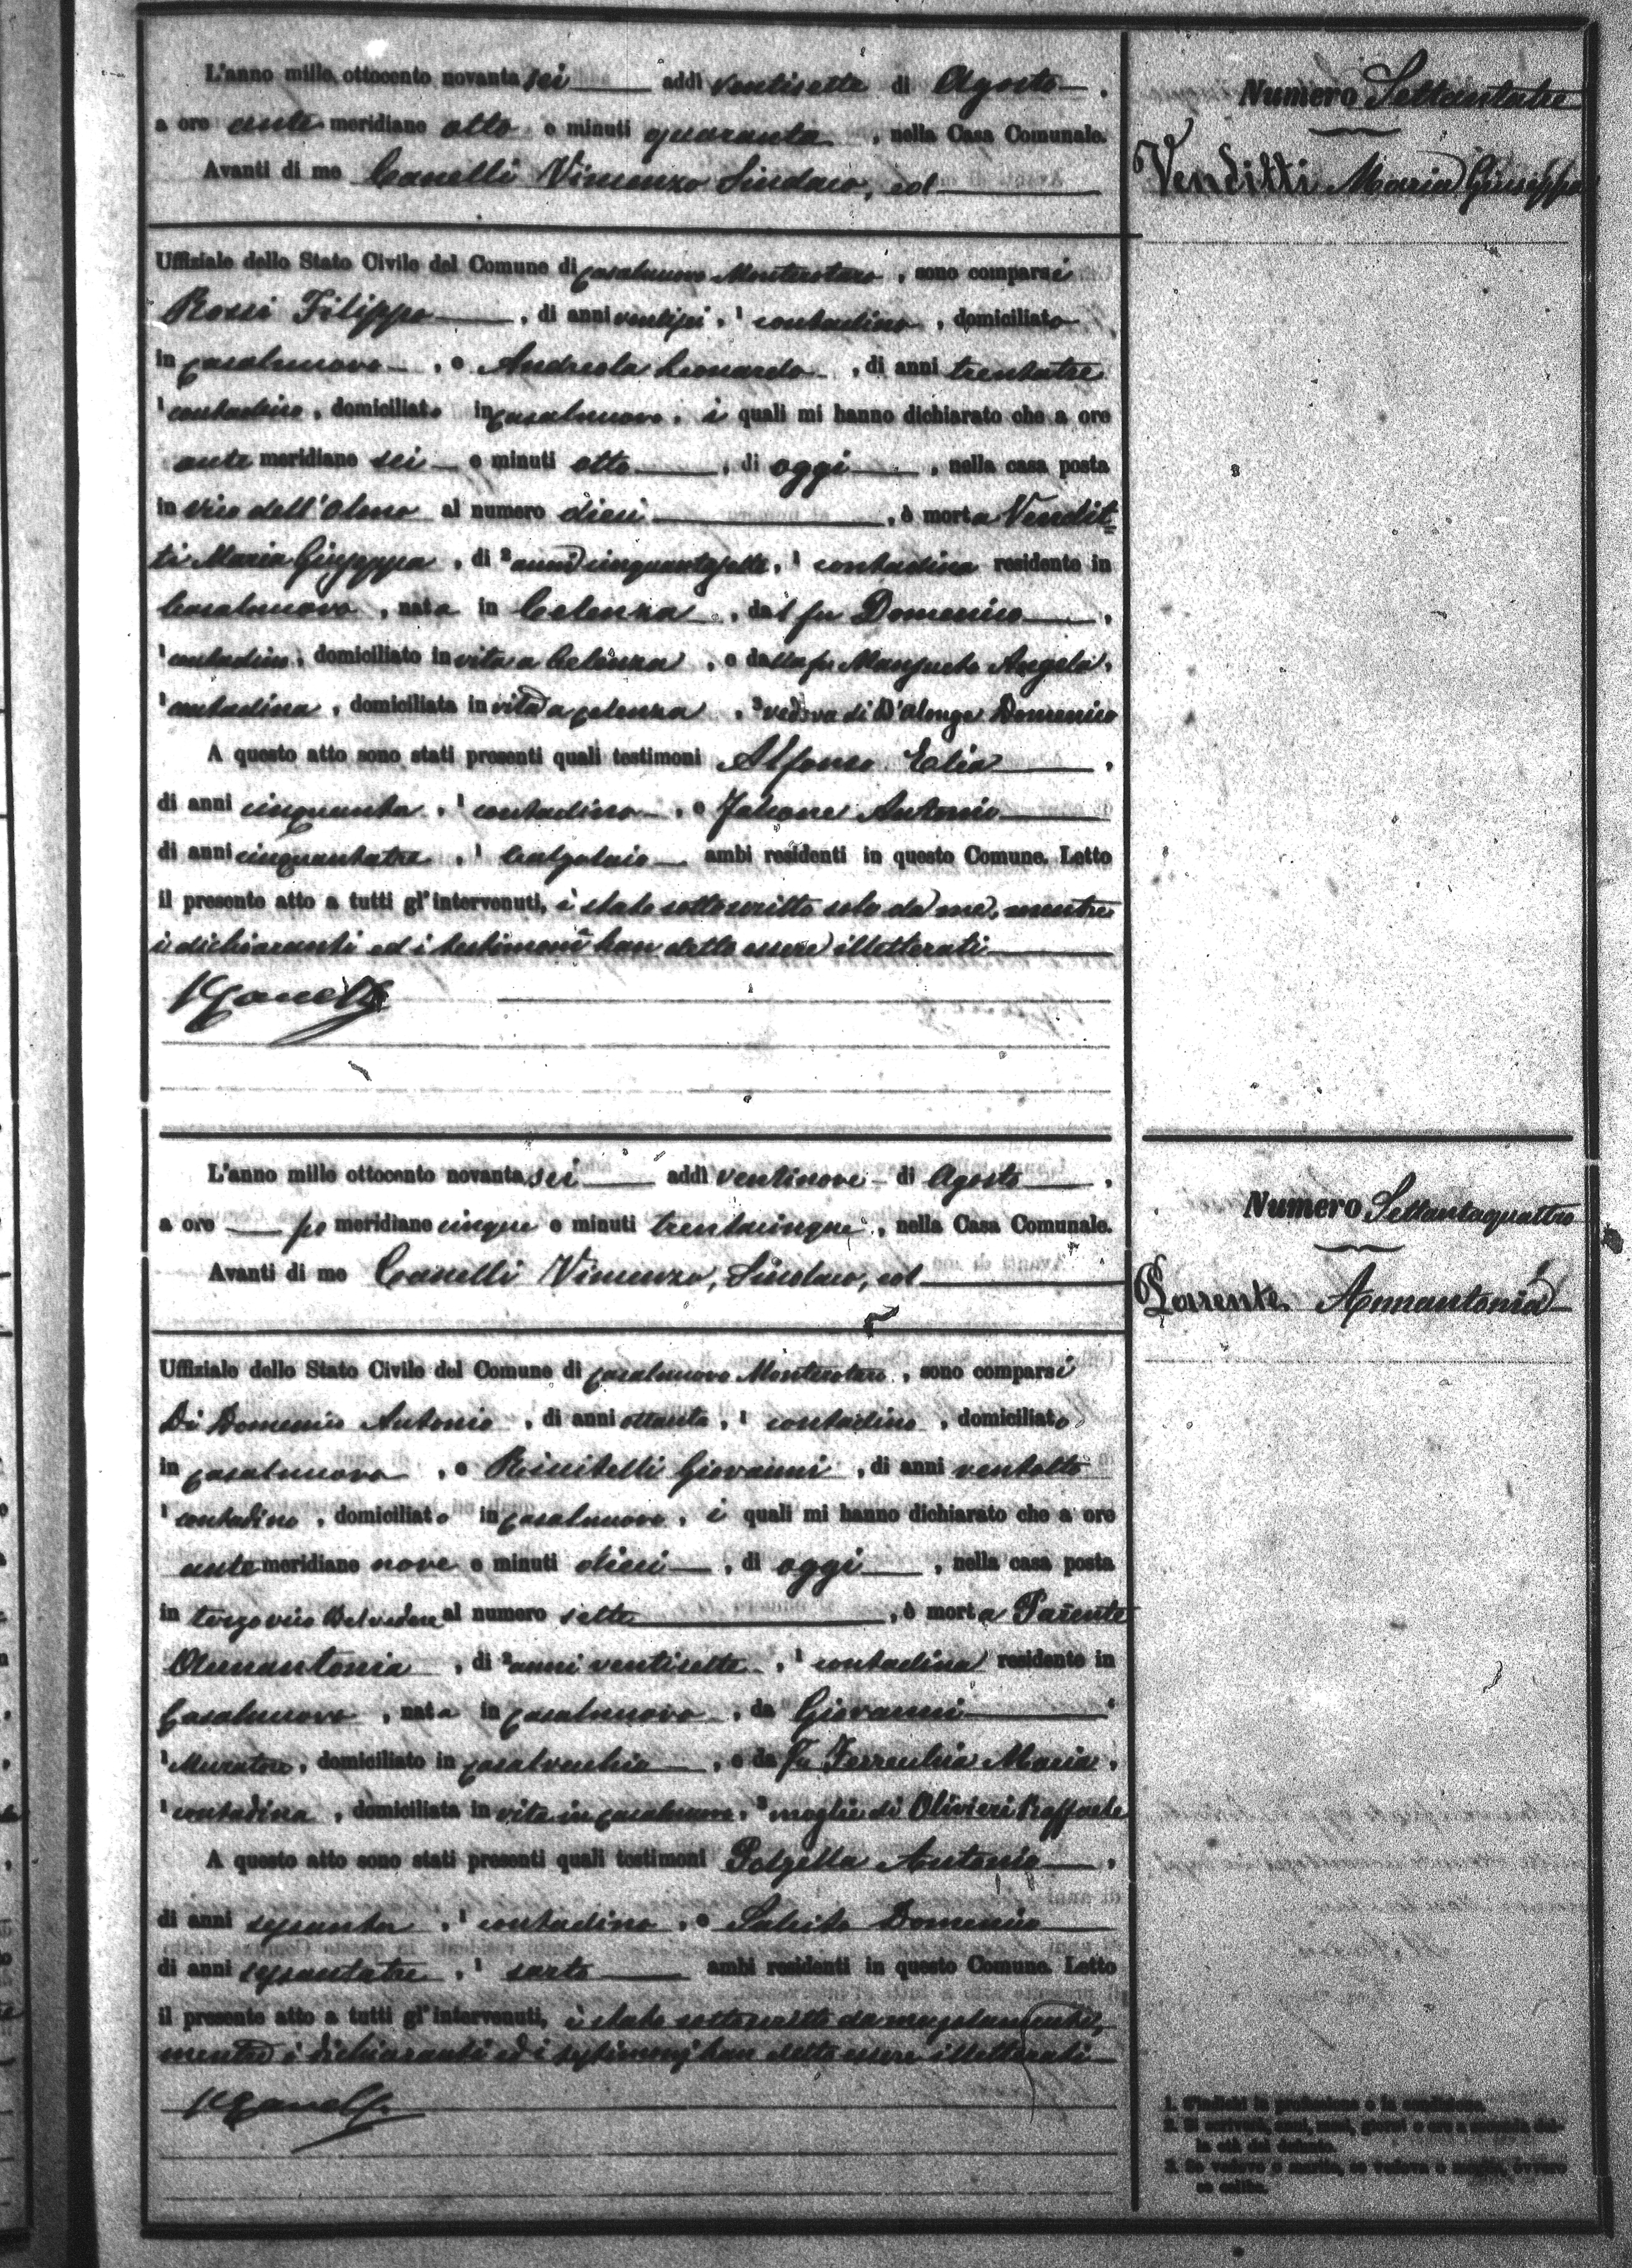 L'anno mille ottocento novantasei addì ventisette di Agosto,
a ore antemeridiane otto e minuti quaranta, nella Casa Comunale.
Avanti di me Canelli Vincenzo Sindaco, ed
Uffiziale dello Stato Civile del Comune di Casalnuovo Monterotaro, sono comparsi
Rossi Filippo, di anni ventisei, 1 contadino, domiciliato
in Casalnuovo, e Andreola Leonardo, di anni trentatre
1 contadino, domiciliato in Casalnuovo, i quali mi hanno dichiarato che a ore
antemeridiane sei e minuti otto, di oggi, nella casa posta
in vico dell'Olmo al numero dieci, è morta Vendit=
ti Maria Giuseppa, di 2 anni cinquantasette, 1 contadina residente in
Casalnuovo, nata in Celenza, dal fu Domenico,
1 contadino, domiciliato in vita a Celenza, e dalla fu Angela,
1 contadina, domiciliata in vita a Celenza, 3 vedova di D'Alonge Domenico
A questo atto sono stati presenti quali testimoni Alfonso Elia,
di anni cinquanta, 1 contadino, e Falcone Antonio
di anni cinquantatre, 1 Calzolaio ambi residenti in questo Comune. Letto
il presente atto a tutti gl'intervenuti, è stato sottoscritto solo da me, mentre
i dichiaranti ed i testimoni han detto essere illetterati
VCanelli
Numero Settantatre
Venditti Maria Giuseppa
L'anno mille ottocento novantasei addì ventinove di Agosto,
a ore pomeridiane cinque e minuti trentacinque, nella Casa Comunale.
Avanti di me Canelli Vincenzo, Sindaco, ed
Uffiziale dello Stato Civile del Comune di Casalnuovo Monterotaro, sono comparsi
Di Domenico Antonio, di anni ottanta, 1 contadino, domiciliato
in Casalnuovo, e Giovanni, di anni ventotto
1 contadino, domiciliato in Casalnuovo, i quali mi hanno dichiarato che a ore
antemeridiane nove e minuti dieci, di oggi, nella casa posta
in terzo vico Belvedere al numero sette, è morta Parente
Annantonia, di 2 anni ventisette, 1 contadina residente in
Casalnuovo, nata in Casalnuovo, da Giovanni
1 Muratore, domiciliato in Casalvecchio, e da fu Ferrecchia Maria,
1 contadina, domiciliata in vita in Casalnuovo, 3 moglie di Olivieri Raffaele
A questo atto sono stati presenti quali testimoni Polzella Antonio,
di anni sessanta, 1 contadino, e Salcito Domenico
di anni sessantatre, 1 sarto ambi residenti in questo Comune. Letto
il presente atto a tutti gl'intervenuti, è stato sottoscritto da me solamente,
mentre i dichiaranti ed i testimoni han detto essere illetterati
VCanelli
Numero Settantaquattro
Parente Annantonia
1. S'indichi la professione o la condizione.
2. Si scrivera, anni, mesi, giorni o ore a seconda del-
la età del defunto.
3. Se vedovo o marito, se vedova o moglie, ovvero
se celibe.